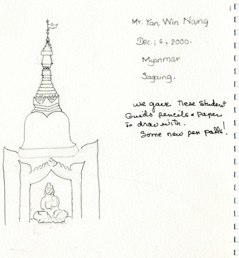 Mr. Yan Win Naing
Dec; 6, 2000.
Myanmar
Sagaing.
we gave these student
Guides pencils & paper
to draw with.
Some new pen palls!